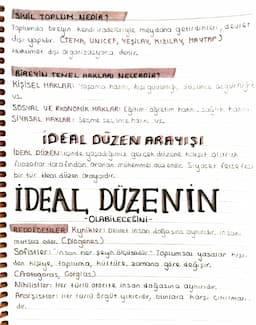 SİVİL TOPLUM NEDİR?
Toplumda bireyin kendi iradeleriyle meydana getirdikleri, devlet
dışı yapıdır. (TEMA, UNICEF, YEŞİLAY, KIZILAY, HAYTAP)
Hükümet dışı organizasyona denir.
BİREYİN TEMEL HAKLARI NELERDİR?
KİŞİSEL HAKLAR: Yaşama hakkı, kişi güvenliği, düşünce özgürlüğü
vs.
SOSYAL VE EKONOMİK HAKLAR: Eğitim-öğretim hakkı, sağlık hakkı
SİYASAL HAKLAR: Seçme seçilme hakkı vs.
İDEAL DÜZEN ARAYIŞI
İDEAL DÜZEN: içinde yaşadığımız gerçek düzene karşıt olarak
filozoflar tarafından aranan mükemmel düzendir. Siyaset felsefesi
bir tür ideal düzen arayışıdır.
İDEAL DÜZENİN
-OLABİLECEĞİNİ-
REDDEDENLER: Kynikler: Devlet insan doğasına aykırıdır, insanı
mutsuz eder. (Diogenes)
Sofistler: "insan her şeyin ölçüsüdür." Toplumsal yasalar kişi-
den kişiye, topluma, kültüre, zamana göre değişir.
(Protagoras, Gorgias)
Nihilistler: Her türlü otorite insan doğasına aykırıdır.
Anarşistler: Her türlü örgüt yıkıcıdır, bunlara karşı çıkılmalı-
dır.